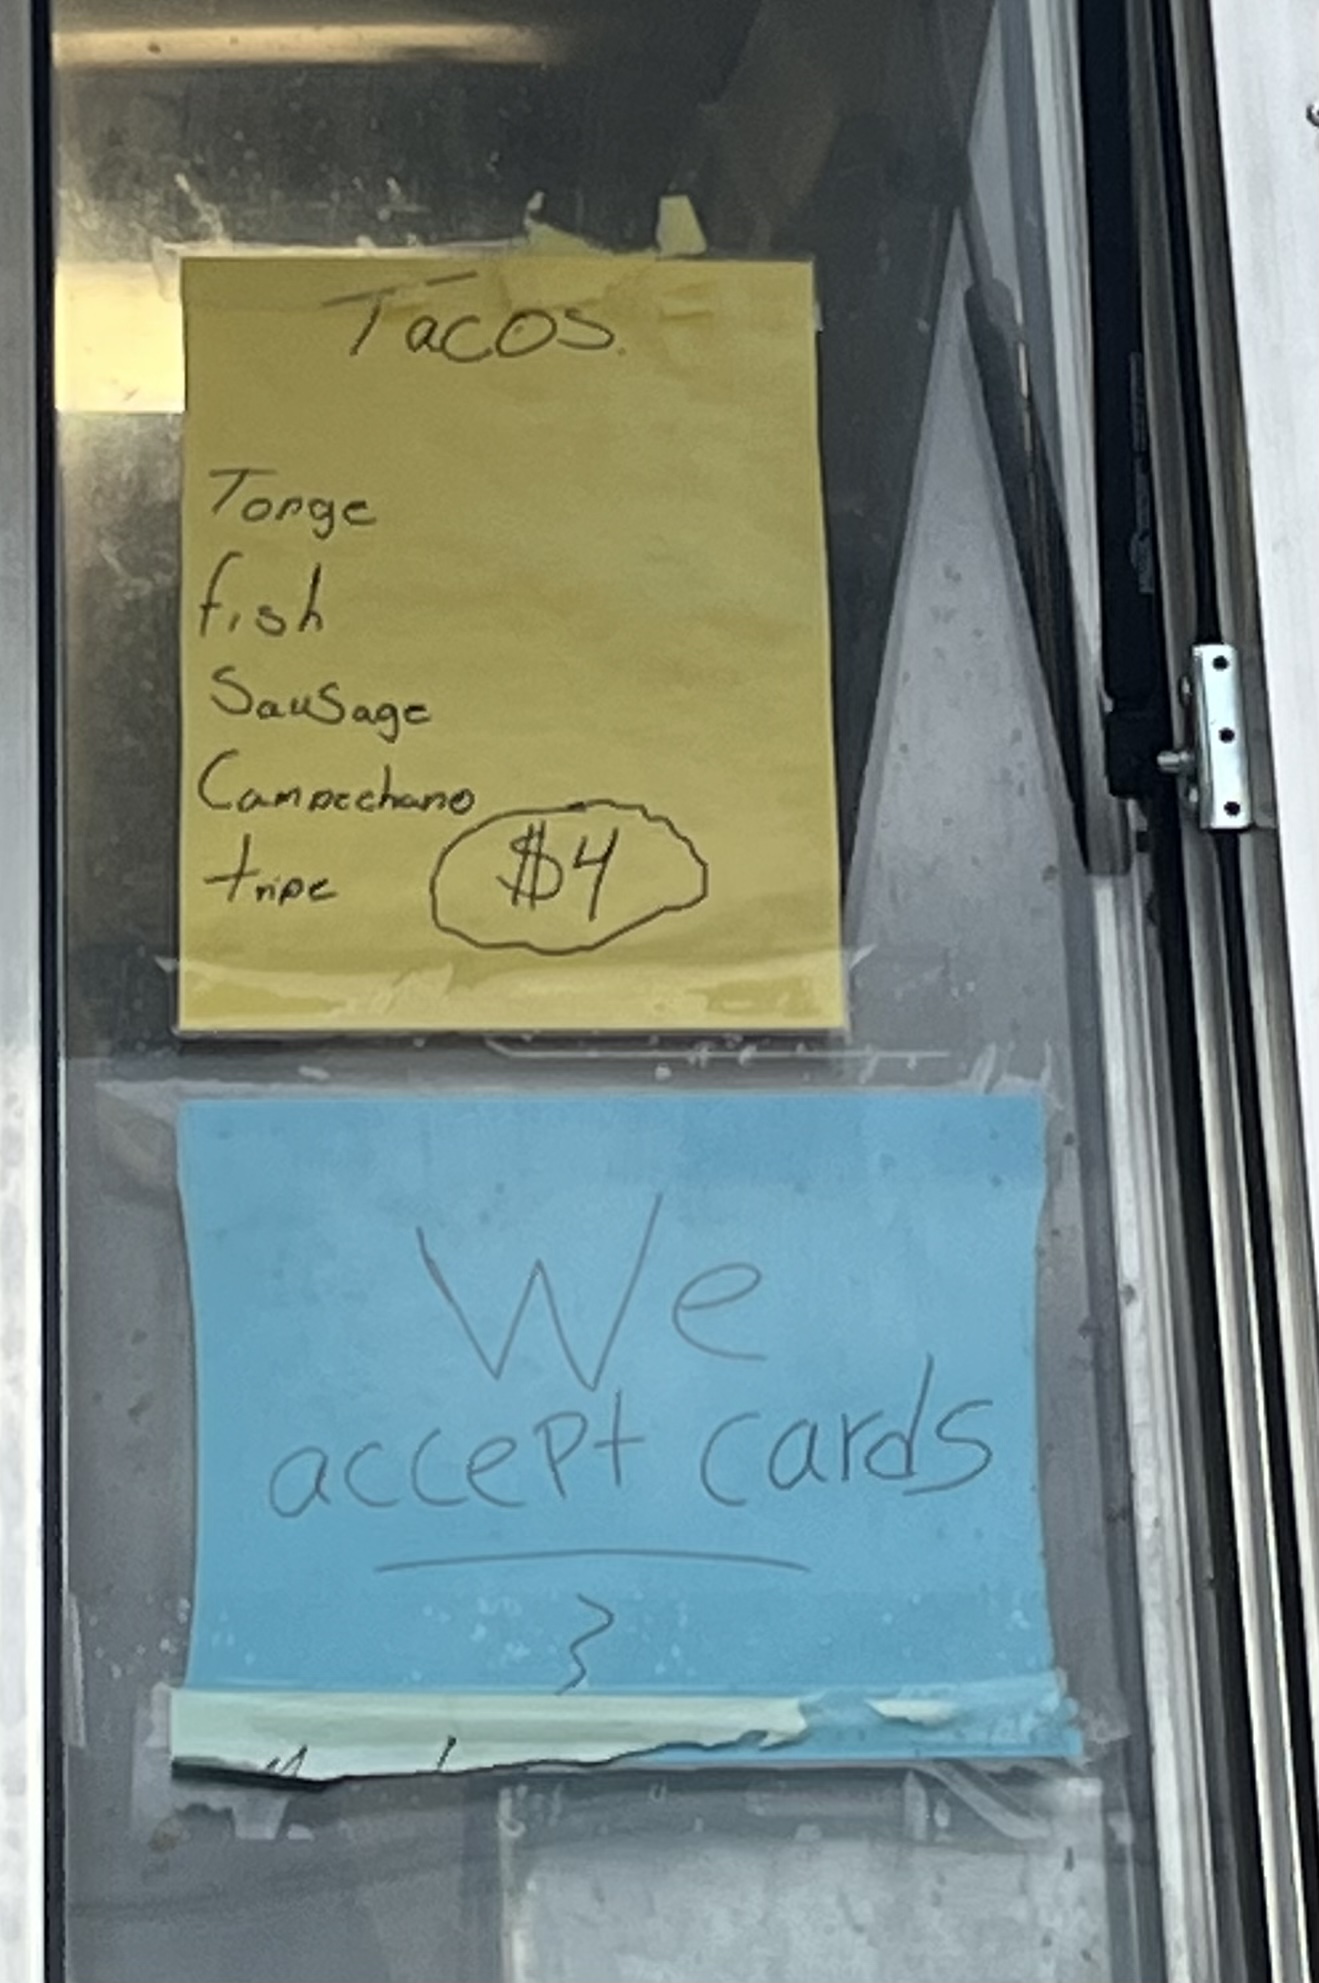 Tacos
Tonge
fish
Sausage
Campechano
tripe
$4
We
accept cards